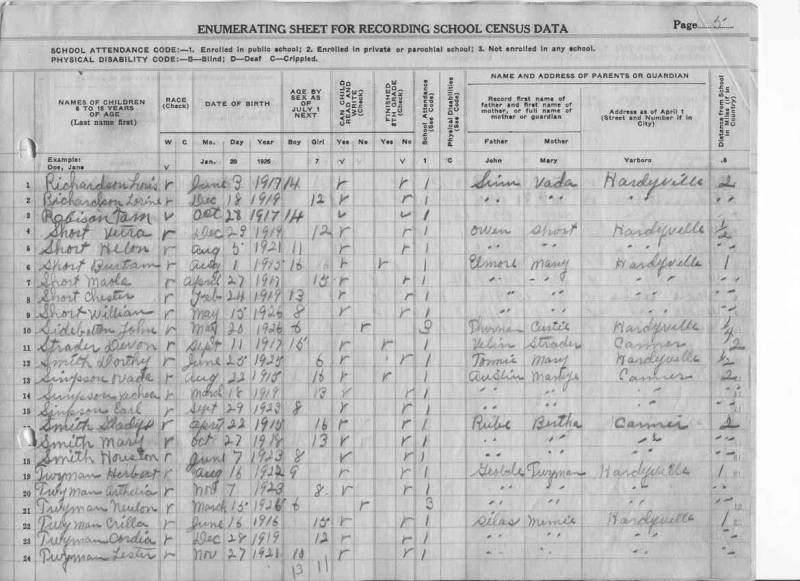 ENUMERATING SHEET FOR RECORDING SCHOOL CENSUS DATA Page 5
SCHOOL ATTENDANCE CODE:—1. Enrolled in public school; 2. Enrolled in private or parochial school; 3. Not enrolled in any school.
PHYSICAL DISABILITY CODE:—B—Blind; D—Deaf C—Crippled.
NAMES OF CHILDREN 6 TO 18 YEARS OF AGE (Last name first) RACE (Check) DATE OF BIRTH AGE BY SEX AS OF JULY 1 NEXT CAN CHILD READ AND WRITE (Check) FINISHED 8TH GRADE (Check) School Attendance (See Code) Physical Disabilities (See Code) NAME AND ADDRESS OF PARENTS OR GUARDIAN Distance from School in Miles (If in Country)
Record first name of father and first name of mother, or full name of mother or guardian Address as of April 1 (Street and Number if in City)
W C Mo. Day Year Boy Girl Yes No Yes No Father Mother
Example: Doe, Jane v Jan. 20 1925 7 v v 1 C John Mary Yarboro .8
1 Richardson Louis r June 3 1917 14 r r 1 Vada Hardyville 2
2 Richardson Lorine r Dec 18 1919 12 r r 1 " " " " " "
3 Robison Tam v Oct 28 1917 14 v v 1
4 Short Vetra r Dec 29 1919 12 r r 1 Owen Short Hardyville 1/2
5 Short Helon r Aug 5 1921 11 r r 1 " " " "
6 Short r Aug 1 1915 16 r r 1 Elmore Mary Hardyville 1
7 Short r April 27 1917 15 r r 1 " " " "
8 Short Chester r Feb 24 1919 13 r r 1 " " " "
9 Short William r May 15 1926 8 r r 1 " " " "
10 Sidebotton John r May 20 1926 6 r 3 Thurman Hardyville
11 Strader Devon r Sept 11 1917 15 r r 1 Strader Canmer 2
12 Smith Dorthy r June 25 1925 6 r r 1 Tommie Mary Hardyville 1/2
13 Simpson Ovada r Aug 22 1915 16 r r 1 Austin Canmer 2
14 Simpson r March 18 1919 13 r r 1 " " " "
15 Simpson Earl r Sept 29 1923 8 r r 1 " " " "
Smith Gladys r April 22 1915 16 r r 1 Rube Bertha Canmer 2
Smith Mary r Oct 27 1918 13 r r 1 " " " "
18 Smith Houston r June 7 1923 8 r r 1 " " " "
19 Twyman Herbert r Aug 16 1922 9 r r 1 Twyman Hardyville 1
20 Twyman r Nov 7 1923 8 r r 1 " " " "
21 Twyman Newton r March 15 1926 6 r 3 " " " "
22 Twyman Crilla r June 16 1916 15 r r 1 Silas Mimie Hardyville 1
23 Twyman Cordia r Dec 28 1919 12 r r 1 " " " "
24 Twyman Lester r Nov 27 1921 10 r r 1 " " " "
13 11